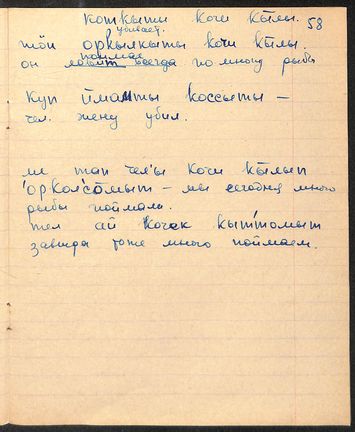 коткыты кочи кылы. 58
убивает.
тӧн оркылкыты кочи кылы.
поймал
он ловит всегда по многу рыбы
куп ӣматты коссыты –
чел. жену убил.
ме тап чел'ы кочи кылып
орколсомыт – мы сегодня много
рыбы поймали.
тел ай кочек кыттомыт
завтра тоже много поймаем.